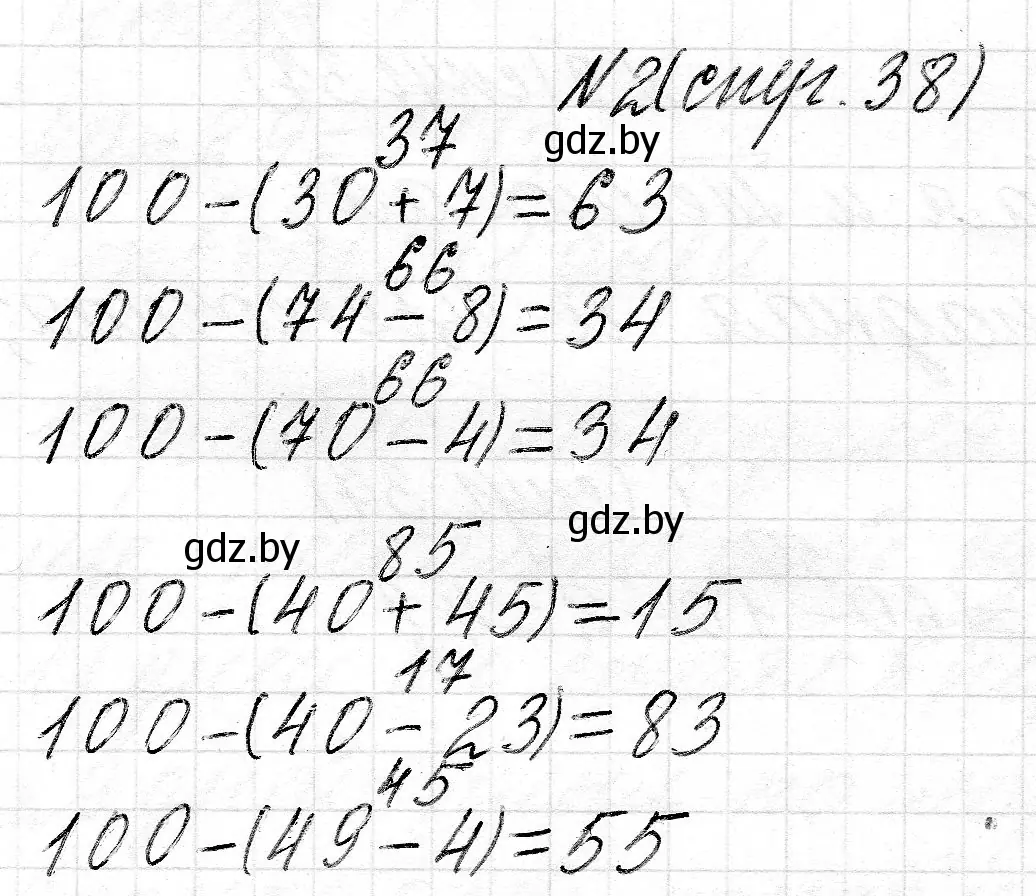 N2(стр. 38)
gdz.by
37
100-(30+7)=63
66
100-(74-8)=34
66
100-(70-4)=34
gdz.by
gdz.by
85
100-(40+45)=15
17
100-(40-23)=83
45
100-(49-4)=55